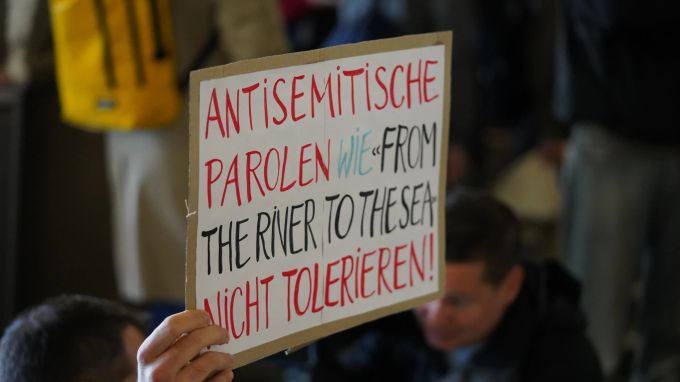 ANTISEMITISCHE
PAROLEN WIE «FROM
THE RIVER TO THE SEA»
NICHT TOLERIEREN!